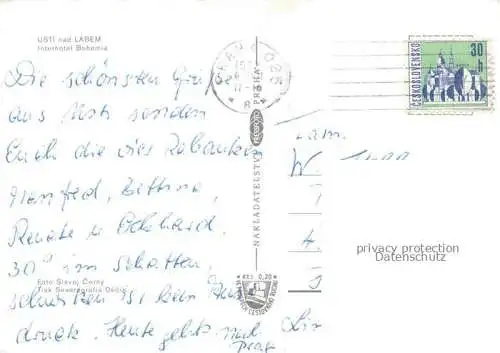 ÚSTÍ nad LABEM
Interhotel Bohemia
Die schönsten Grüße
aus Usti senden
Euch die vier
Manfred, Bettina,
Renate u Eckhard.
30° im Schatten,
schwitzen ist kein Aus
druck. Heute geht's nach
Prag.
Foto Slavoj Černý
Tisk Severografia Děčín
NAKLADATELSTVÍ PRAHA
Kčs 0,20
ČESKOSLOVENSKO
30
h
Fam.
W
privacy protection
Datenschutz